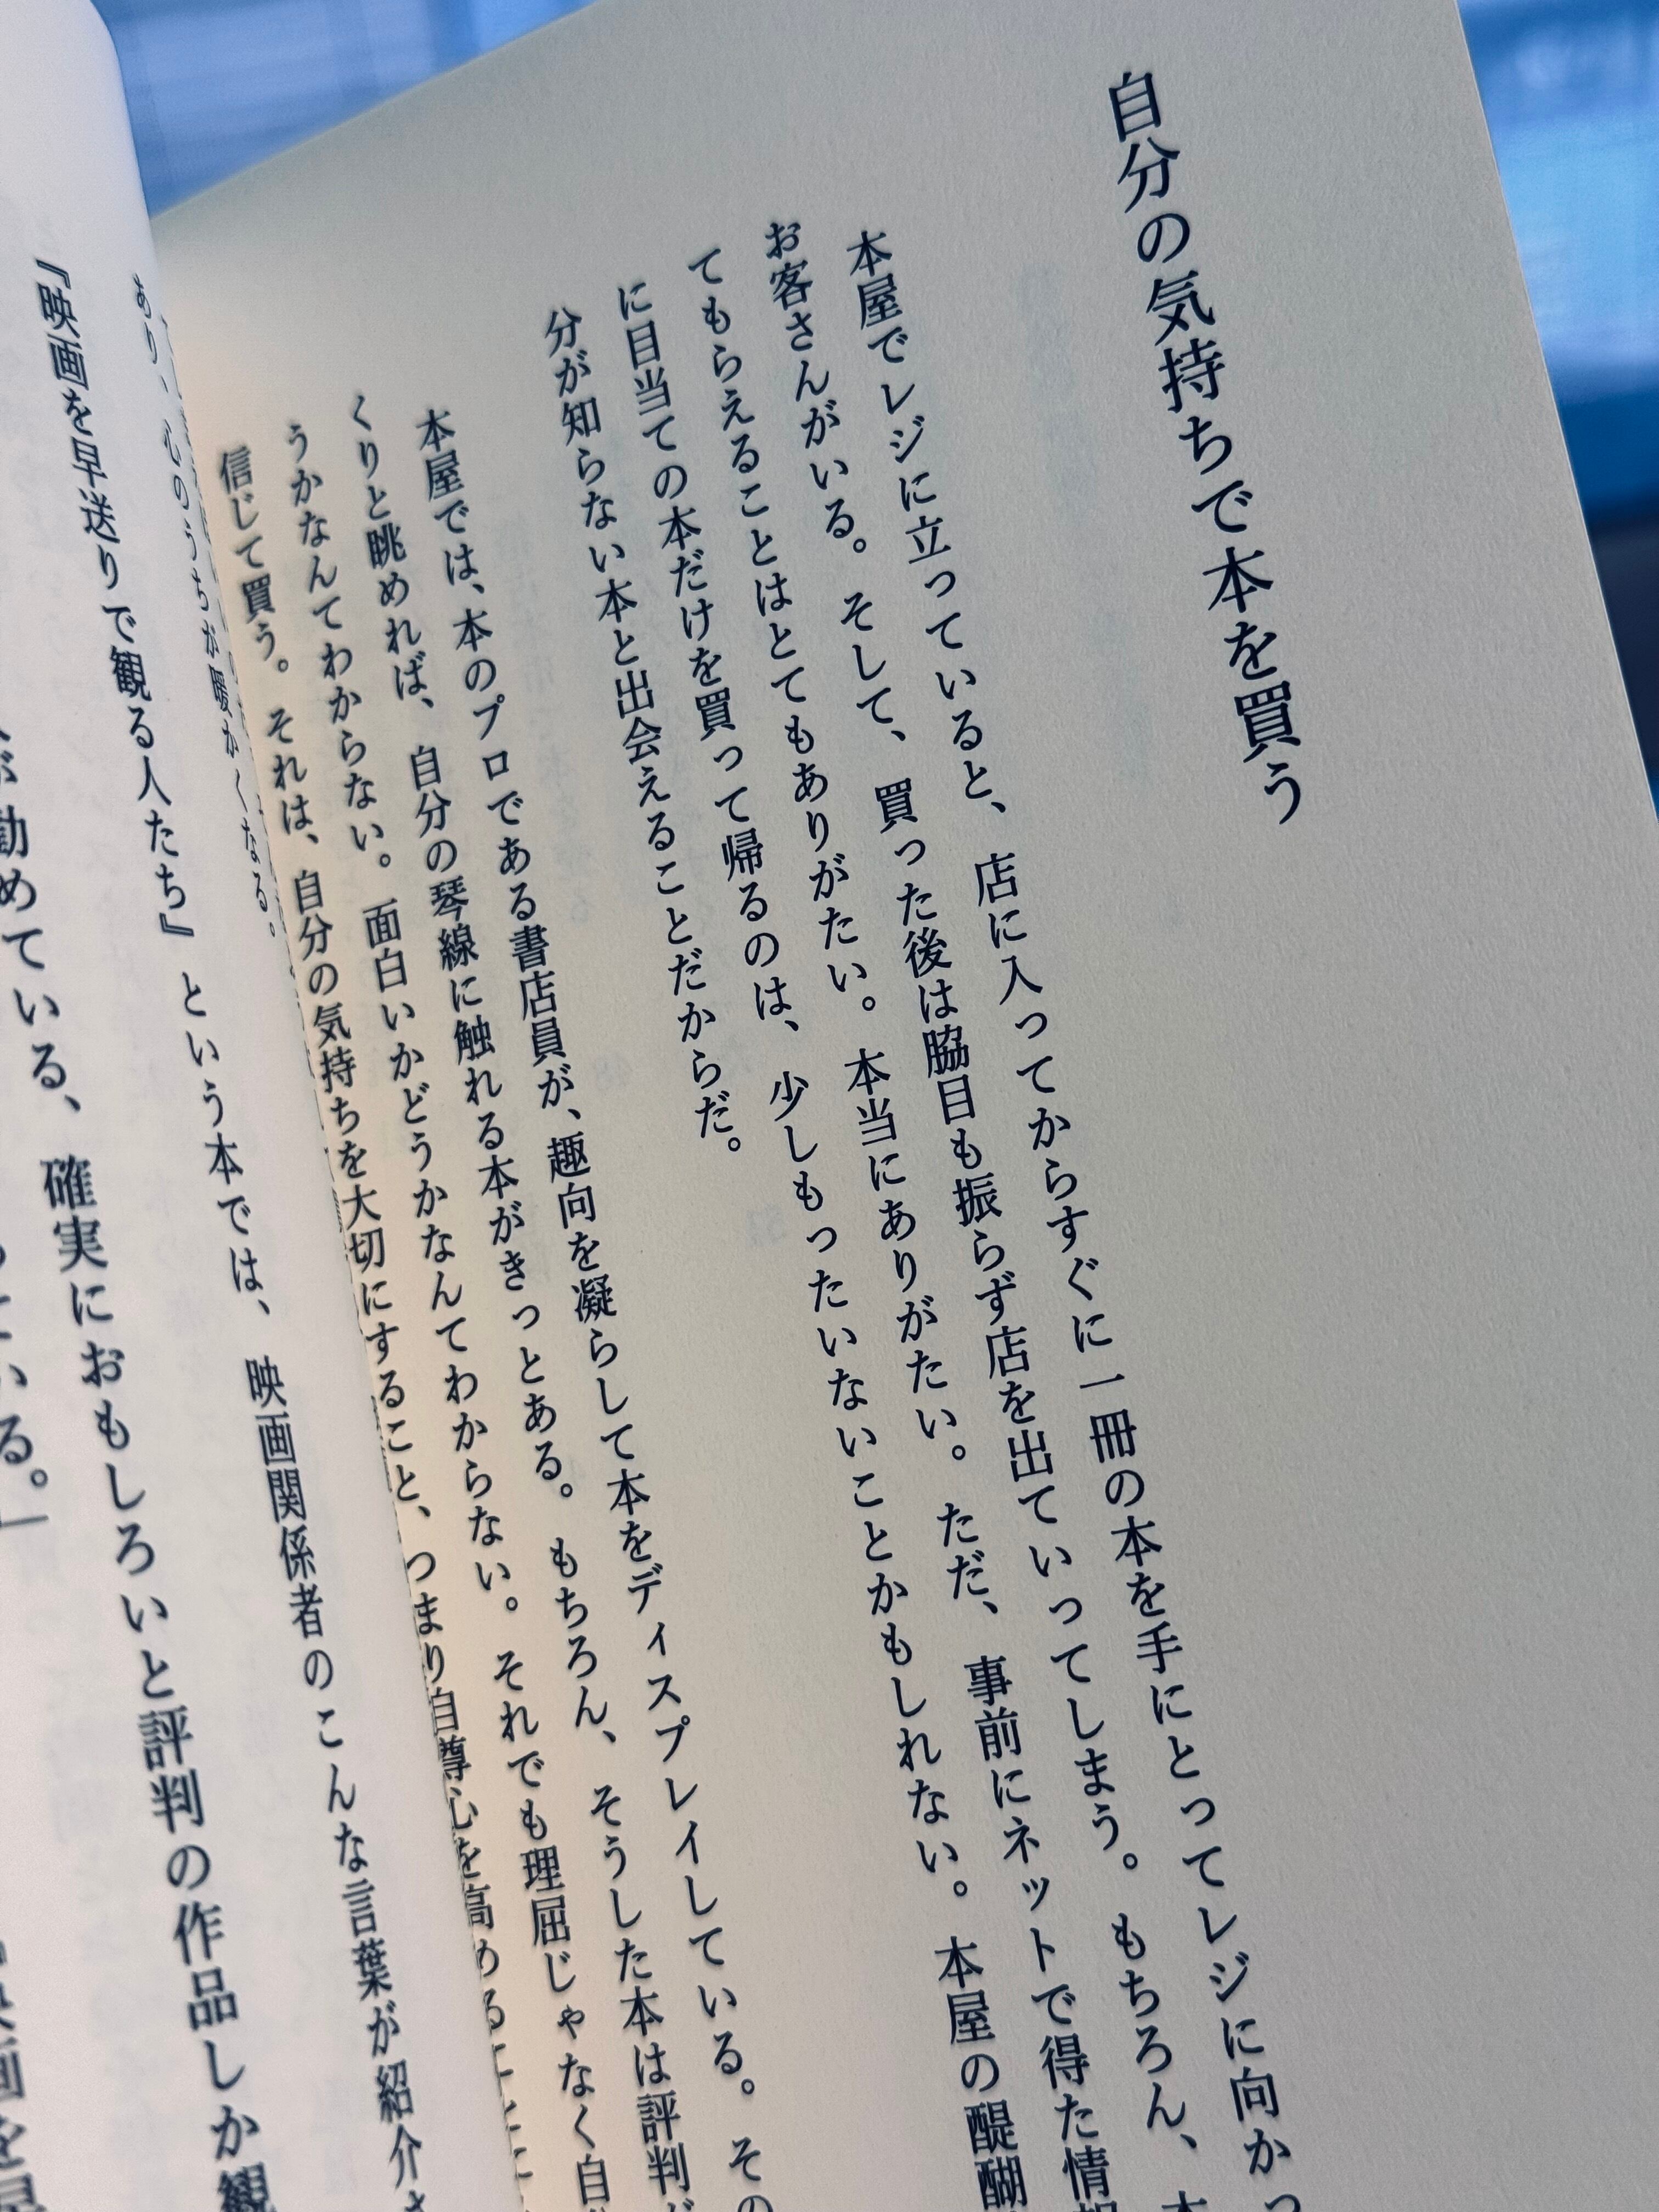 自分の気持ちで本を買う
本屋でレジに立っていると、店に入ってからすぐに一冊の本を手にとってレジに向かっ
お客さんがいる。そして、買った後は脇目も振らず店を出ていってしまう。もちろん、本
てもらえることはとてもありがたい。本当にありがたい。ただ、事前にネットで得た情報
に目当ての本だけを買って帰るのは、少しもったいないことかもしれない。本屋の醍醐
分が知らない本と出会えることだからだ。
本屋では、本のプロである書店員が、趣向を凝らして本をディスプレイしている。その
くりと眺めれば、自分の琴線に触れる本がきっとある。もちろん、そうした本は評判が
うかなんてわからない。面白いかどうかなんてわからない。それでも理屈じゃなく自
信じて買う。それは、自分の気持ちを大切にすること、つまり自尊心を高めること
あり、心のうちが暖かくなる。
『映画を早送りで観る人たち』という本では、映画関係者のこんな言葉が紹介さ
確実におもしろいと評判の作品しか観
勧めている、
いる。」